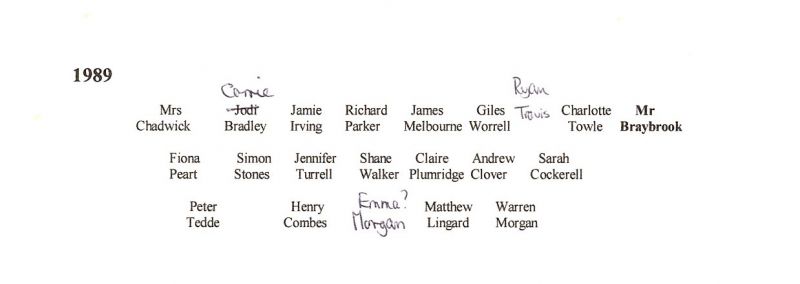 1989
Carrie Ryan
Mrs Jodi Jamie Richard James Giles Travis Charlotte Mr
Chadwick Bradley Irving Parker Melbourne Worrell Towle Braybrook
Fiona Simon Jennifer Shane Claire Andrew Sarah
Peart Stones Turrell Walker Plumridge Clover Cockerell
Peter Henry Emma? Matthew Warren
Tedde Combes Morgan Lingard Morgan